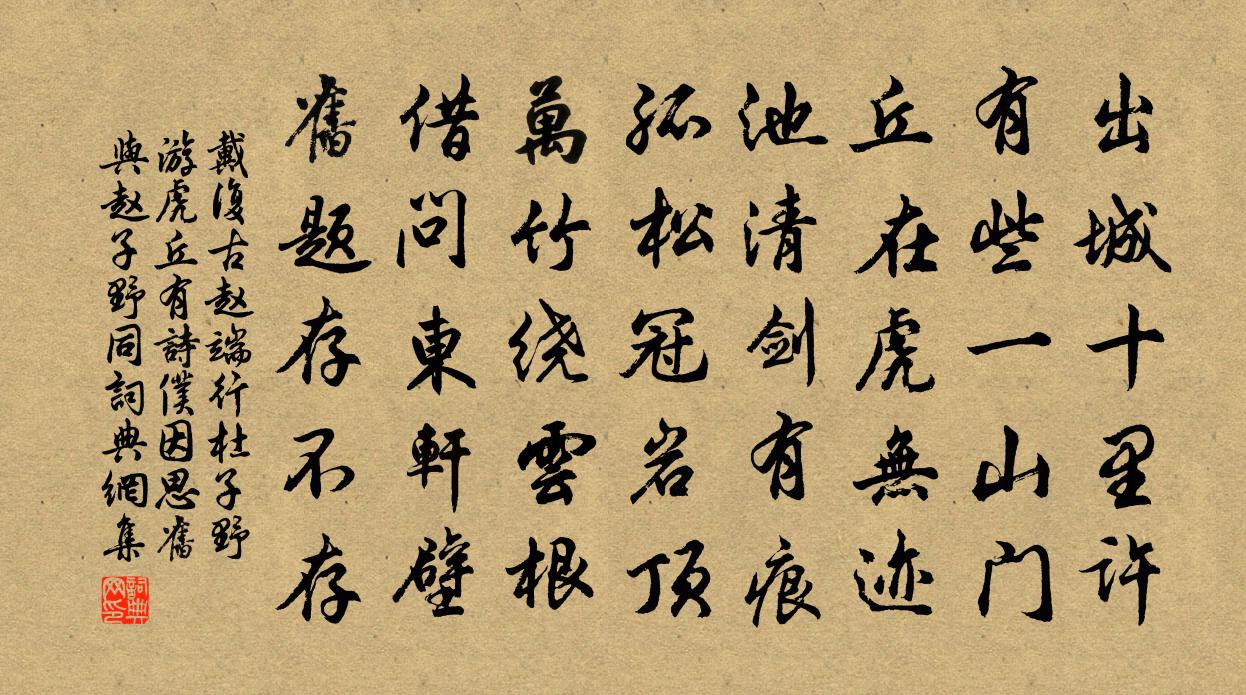 出城十里许
有些一山门
丘在虎無迹
池清剑有痕
孤松冠岩顶
萬竹绕雲根
借问東軒壁
舊题存不存
戴復古赵端行杜子野
游虎丘有詩僕因思舊
與赵子野同詞典網集
詞典网印